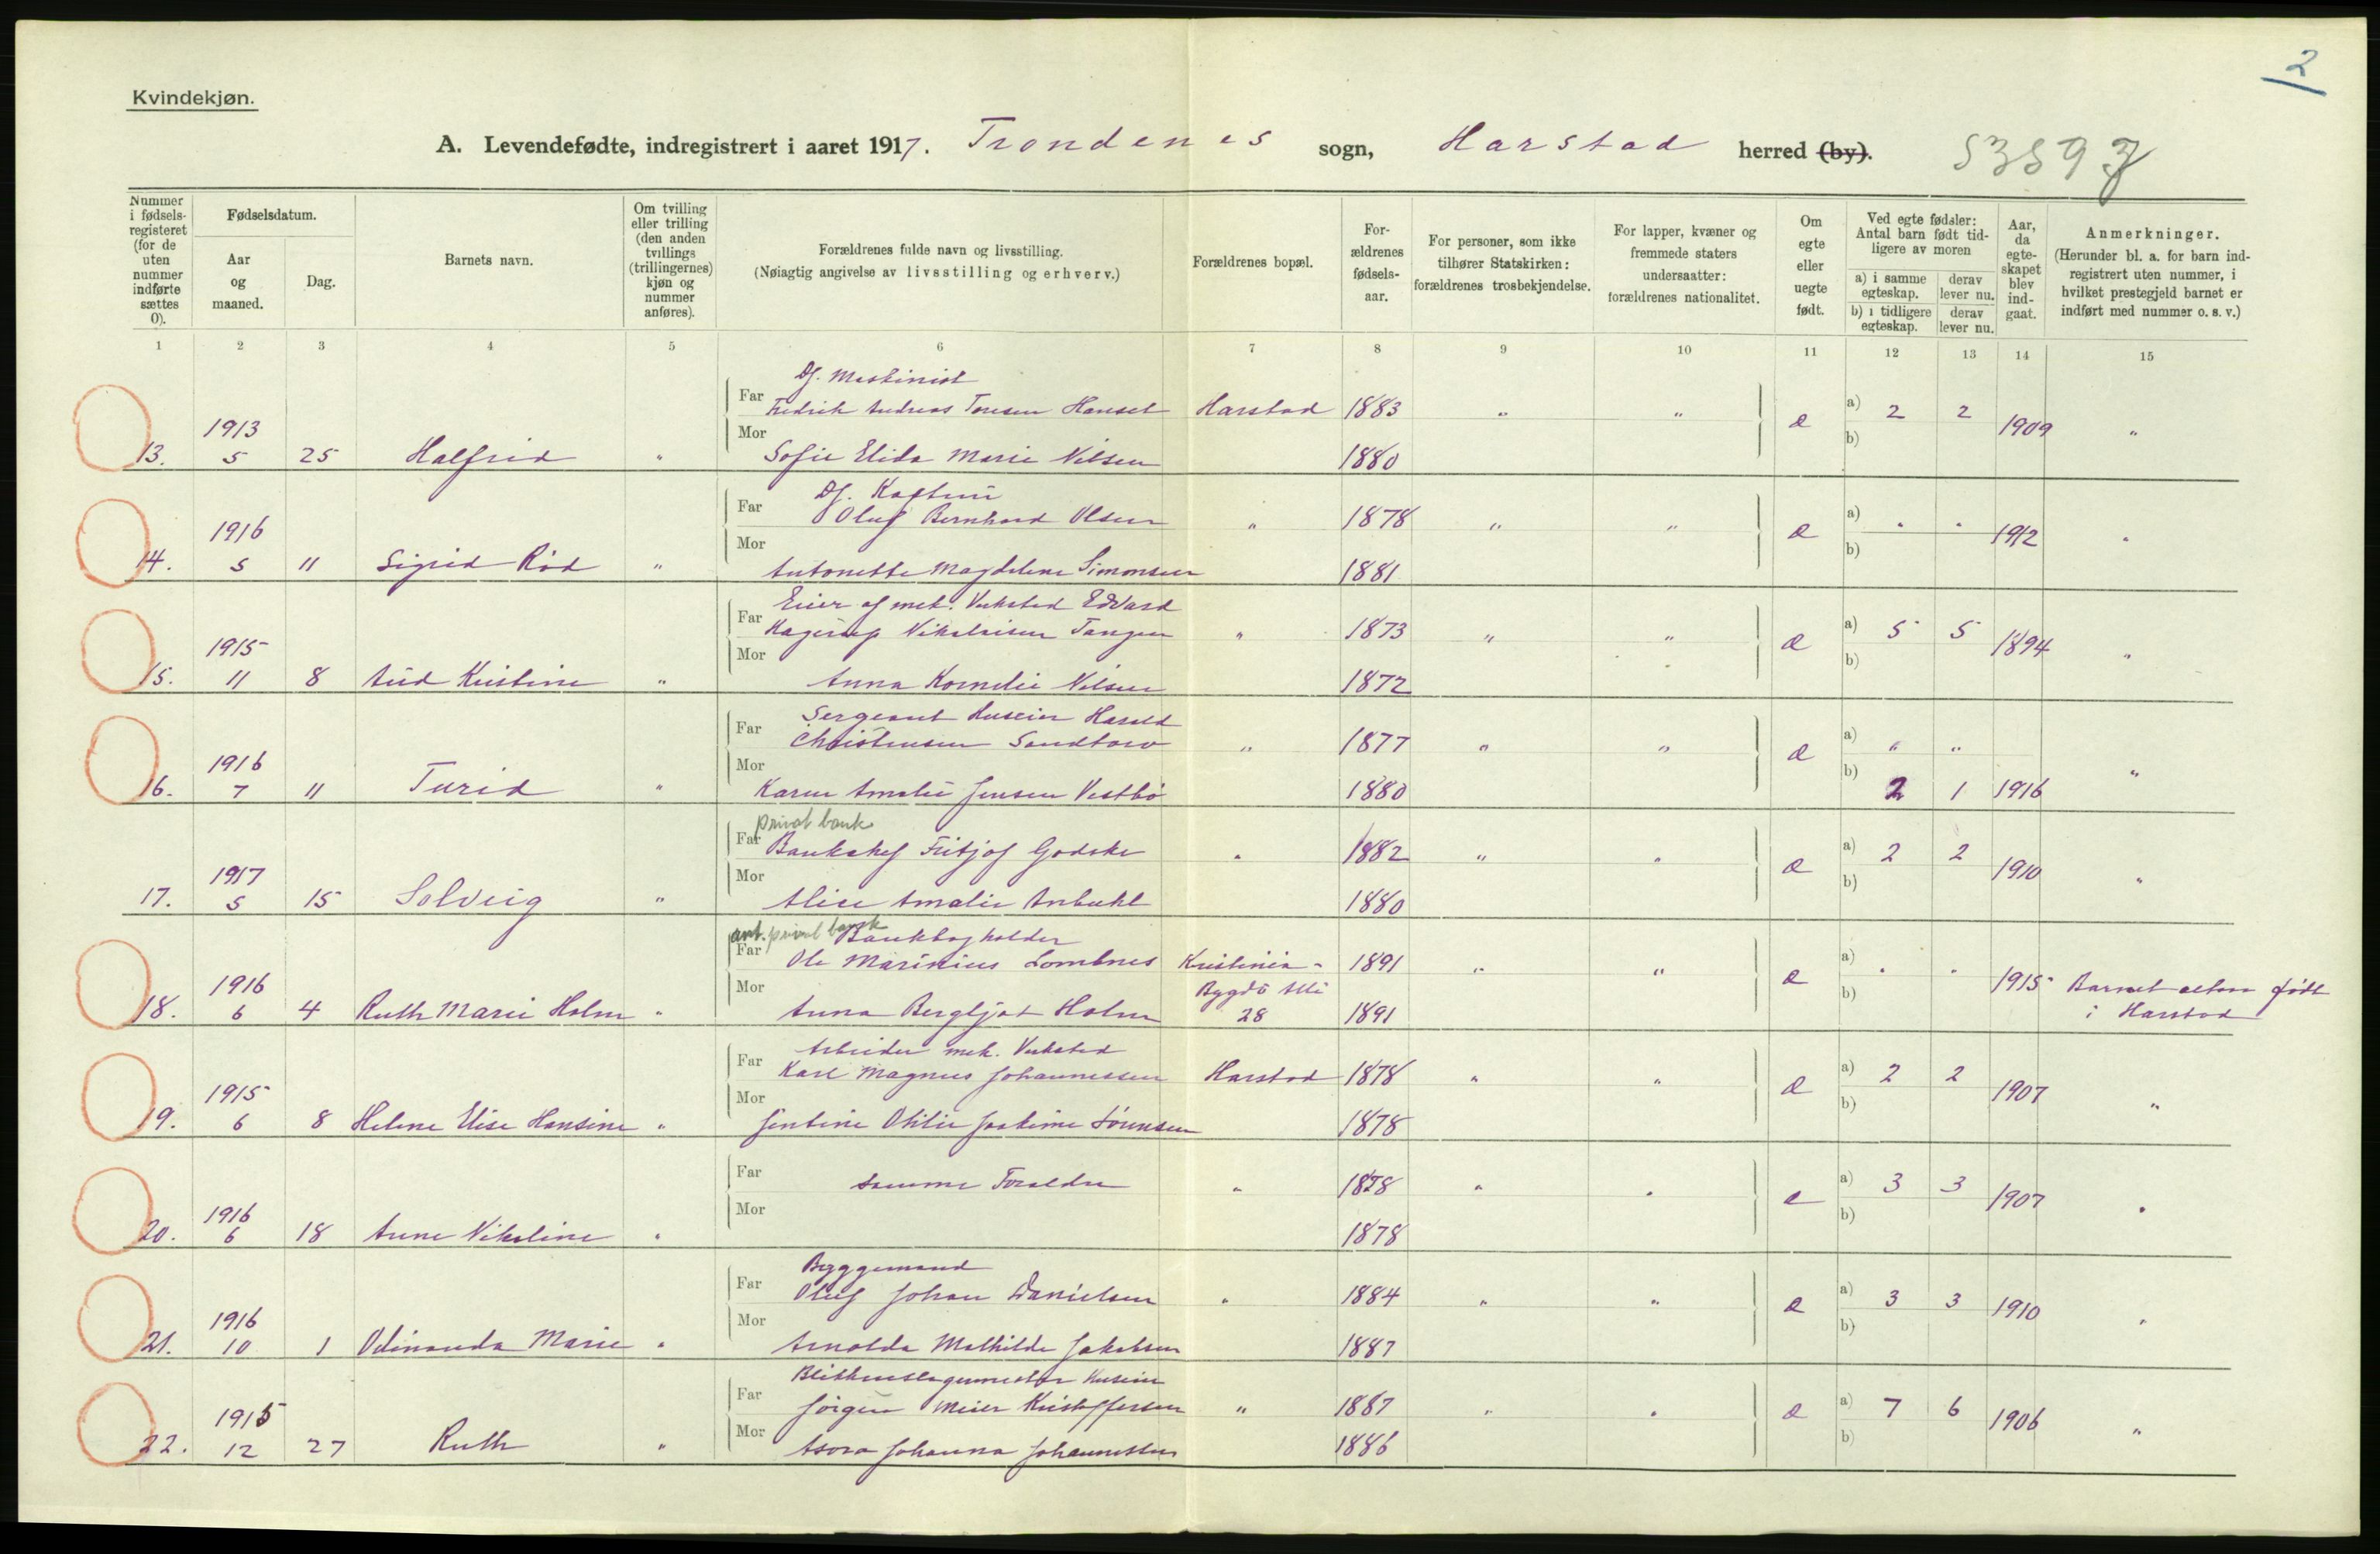 2
Kvindekjøn.
A. Levendefødte, indregistrert i aaret 1917. Trondenes sogn, Harstad herred (by).
Nummer i fødsels-registeret (for de uten nummer indførte sættes 0).
Fødselsdatum.
Aar og maaned.
Dag.
Barnets navn.
Om tvilling eller trilling (den anden tvillings (trillingernes) kjøn og nummer anføres).
Forældrenes fulde navn og livsstilling.
(Nøiagtig angivelse av livsstilling og erhverv.)
Forældrenes bopæl.
For-ældrenes fødsels-aar.
For personer, som ikke tilhører Statskirken: forældrenes trosbekjendelse.
For lapper, kvæner og fremmede staters undersaatter: forældrenes nationalitet.
Om egte eller uegte født.
Ved egte fødsler: Antal barn født tid-ligere av moren
a) i samme egteskap. derav lever nu.
b) i tidligere egteskap. derav lever nu.
Aar, da egte-skapet blev ind-gaat.
Anmerkninger.
(Herunder bl. a. for barn ind-registrert uten nummer, i hvilket prestegjeld barnet er indført med nummer o. s. v.)
1 2 3 4 5 6 7 8 9 10 11 12 13 14 15
Df. Maskinist
Far Fredrik Andreas Hansel Harstad 1883 " " a) 2 2
1913 Mor e 1909 "
13. 5 25 Halfrid " Sofie Elida Marie Nilsen 1880 b)
Df.
Far Oluf Bernhard Olsen " 1878 " " a) " "
1916 Mor e 1912 "
14. 5 11 Sigrid Rød " Antonette Magdelene Simonsen 1881 b)
Eier af mek. Verksted Edvard
Far Hagerup Nikolaisen Tangen " 1873 " " a) 5 5
1915 Mor e 1894 "
15. 11 8 Aud Kristine " Anna Kornelie Nilsen 1872 b)
Sergeant Huseier Harald
Far Christensen " 1877 " " a) " "
1916 Mor e "
16. 7 11 Turid " Karen Amalie Jensen Vestbø 1880 b) 2 1 1916
privat bank
Far Bankchef Fritjof Godske " 1882 " " a) 2 2
1917 Mor e 1910 "
17. 5 15 Solveig " Alice Amalie 1880 b)
privat bank Bankbogholder
Far Ole Marinius Kristiania- 1891 " " a) " "
1916 Mor Bygdö Alle e 1915 Barnet født
18. 6 4 Ruth Marie Holm " Anna Bergljot Holm 28 1891 b) i Harstad
Arbeider mek. Verksted
Far Karl Magnus Johannessen Harstad 1878 " " a) 2 2
1915 Mor e 1907 "
19. 6 8 Helene Elise Hansine " Jentine Otilie Joakime Sørensen 1878 b)
Far Samme Foreldre " 1878 " " a) 3 3
1916 Mor e 1907 "
20. 6 18 Anne Nikoline " 1878 b)
Byggemand
Far Oluf Johan Danielsen " 1884 " " a) 3 3
1916 Mor e 1910 "
21. 10 1 Odinanda Marie " Arnolda Mathilde Jakobsen 1887 b)
Blikkenslagermester Huseier
Far Jørgen Meier Kristoffersen " 1887 " " a) 7 6
1915 Mor e 1906 "
22. 12 27 Ruth " Asora Johanna Johannessen 1886 b)